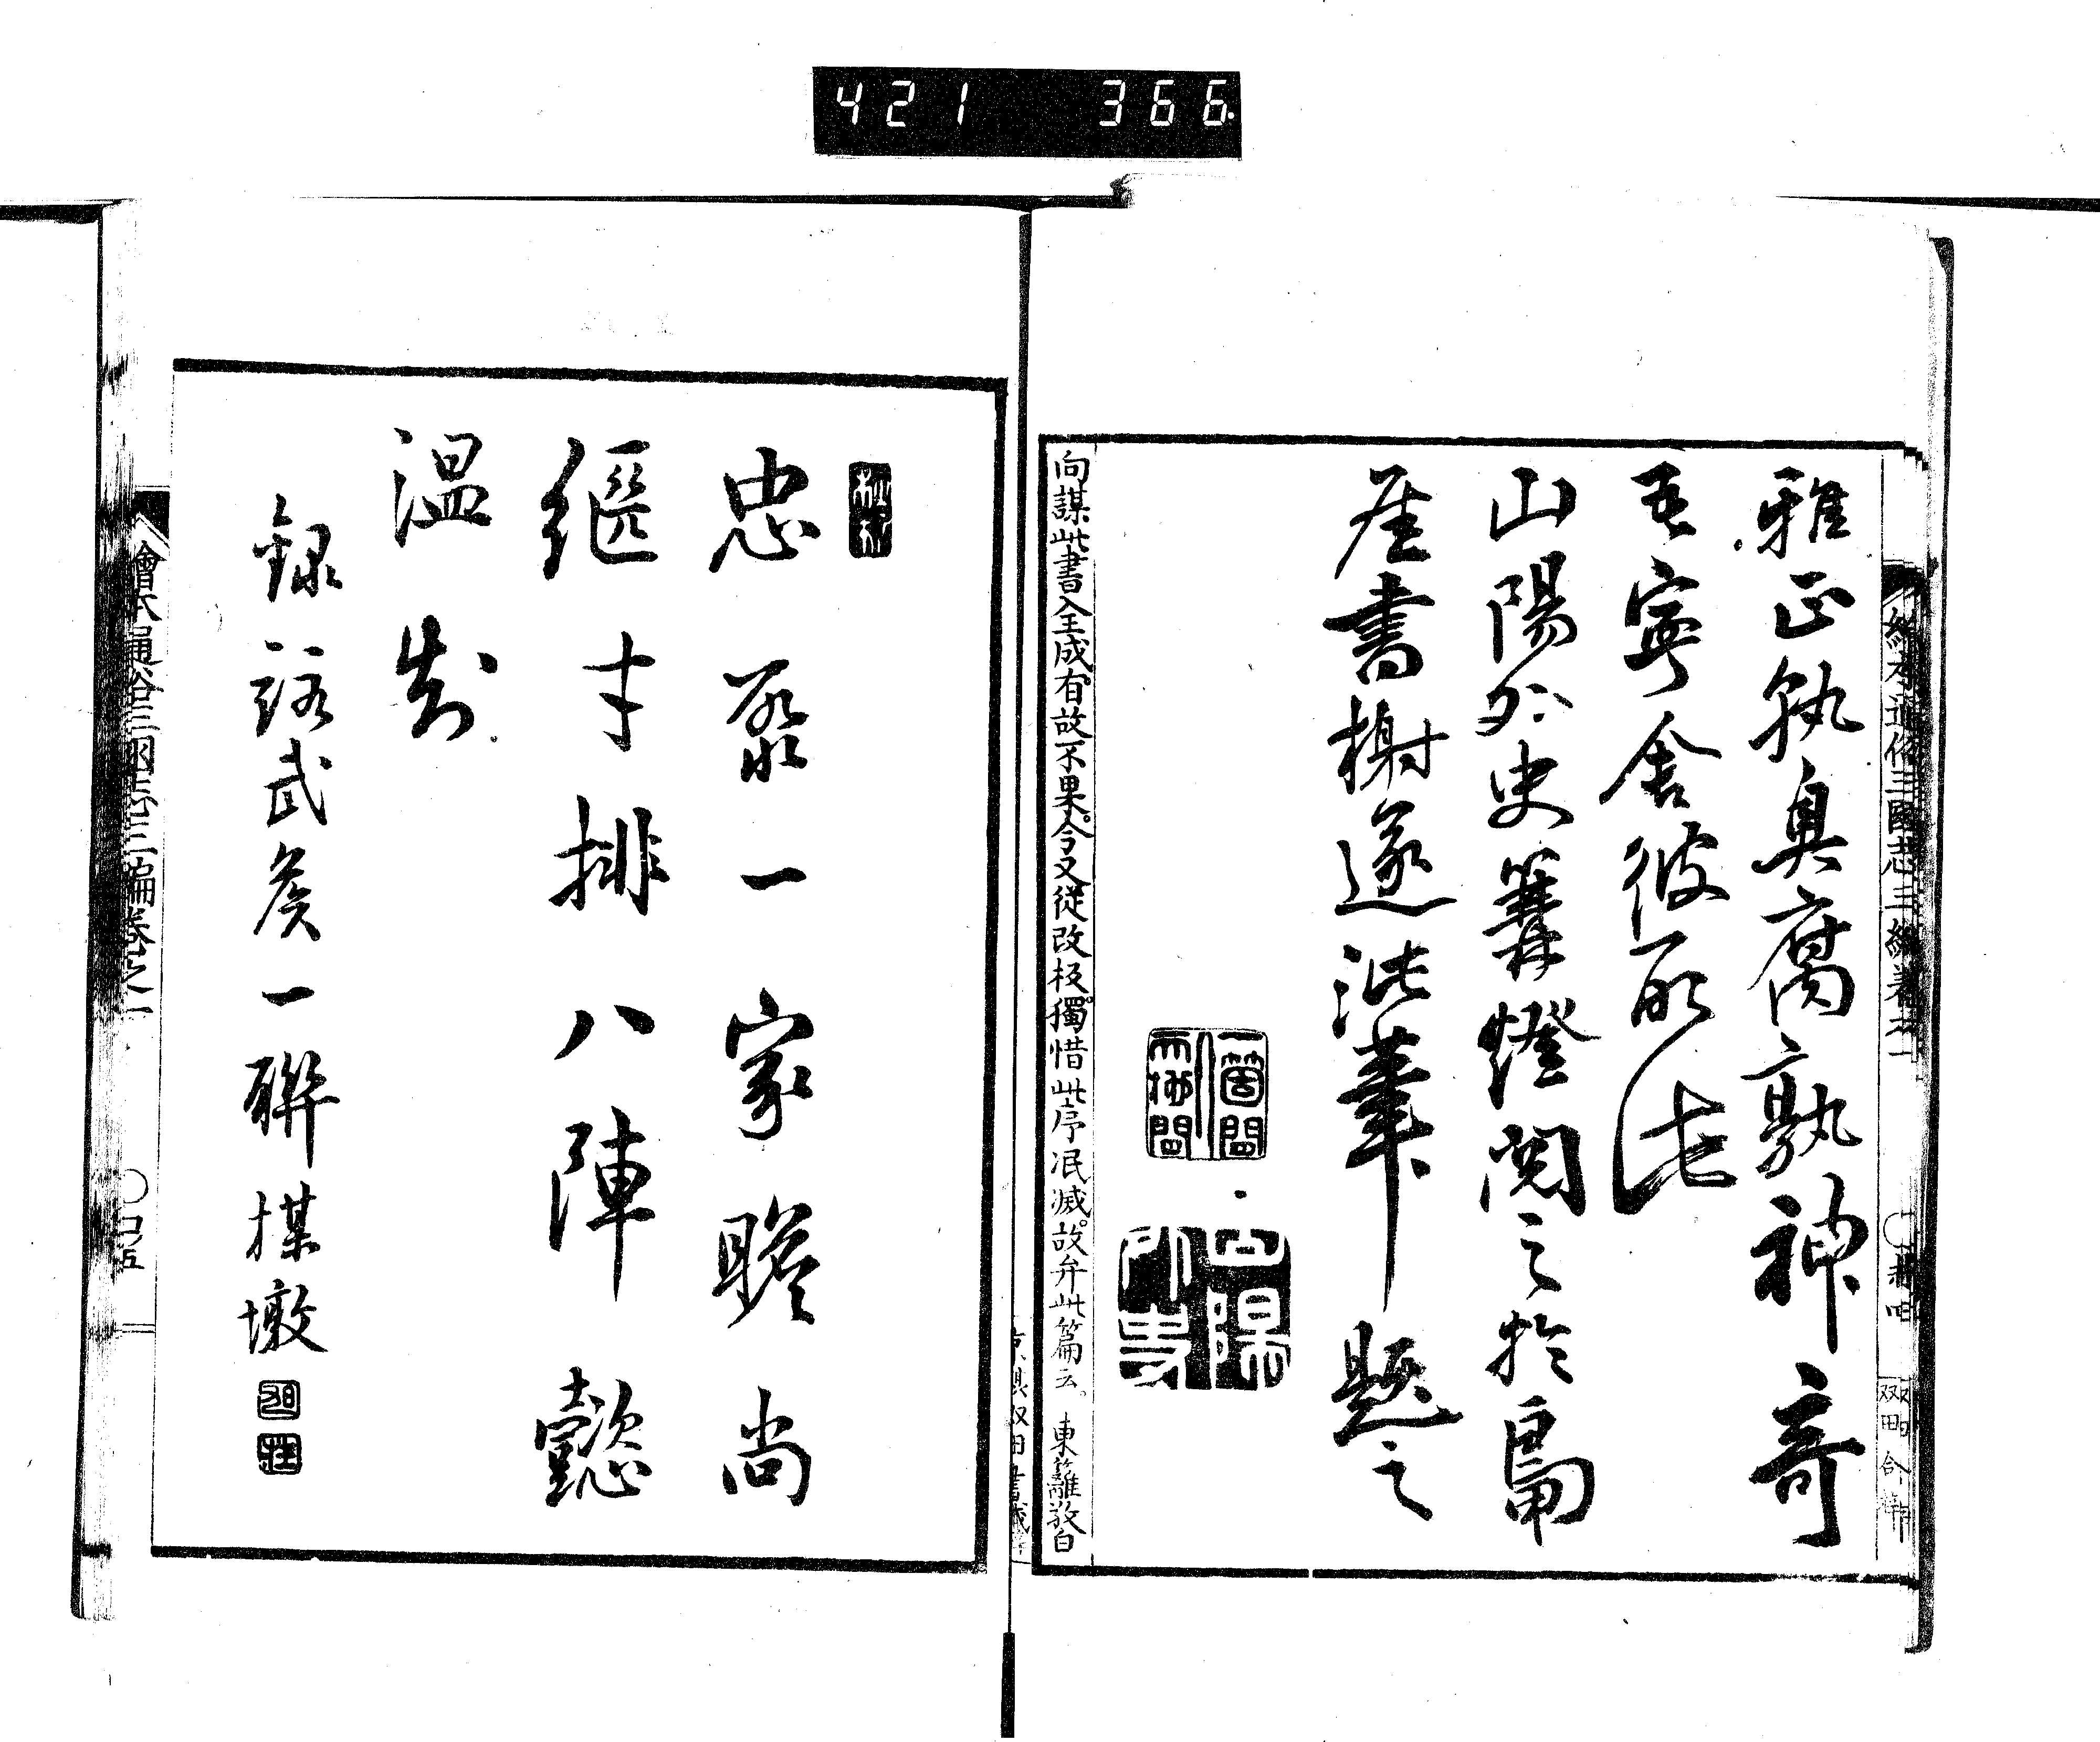 421 366
繪本通俗三國志三編卷之一
雅正孰臭腐孰神奇
吾寧舍彼取此
山陽外史篝燈閲之於
書榭遂泚筆題之
向謀此書全成。有故不果。今又從改板。獨惜此序泯滅。故弁此篇云。 東籬敬白
忠聚一家瞻尚
継才排八陣懿
温制
録詠武矦一聯 楳墩
旭 莊
繪本通俗三國志三編卷之一 〇口五